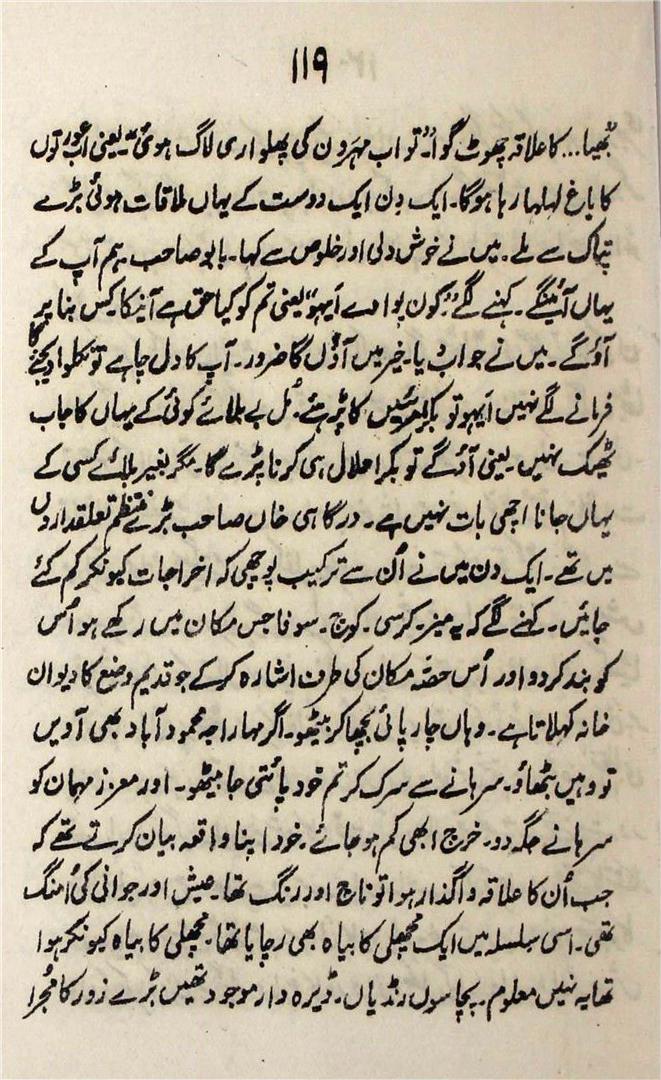 ۱۱۹
بھیا... کا علاقہ چھوٹ گوا۔" تو اب مہرون کی پھلواری لاگ ہوئی" یعنی اب عورتوں
کا باغ لہلہا رہا ہوگا۔ ایک دن ایک دوست کے یہاں ملاقات ہوئی بڑے
تپاک سے ملے۔ میں نے خوش دلی اور خلوص سے کہا۔ بابو صاحب ہم آپ کے
یہاں آئینگے۔ کہنے لگے "کون پوا دے اَیہو" یعنی تم کو کیا حق ہے آنیکا کِس بنا پر
آؤ گے۔ میں نے جواب دیا۔ خیر میں آؤں گا ضرور۔ آپ کا دل چاہے تو نکلوا دیجئے گا
فرمانے لگے نہیں اَیہو تو بکرا کاٹے پڑ ہئے۔ مُل بے بلائے کوئی کے یہاں کا جاب
ٹھیک نہیں یعنی آؤ گے تو بکرا حلال ہی کرنا پڑے گا۔ مگر بغیر بلائے کسی کے
یہاں جانا اچھی بات نہیں ہے۔ درگاہی خاں صاحب بڑے منتظم تعلقداروں
میں تھے۔ ایک دن میں نے اُن سے ترکیب پوچھی کہ اخراجات کیونکر کم کئے
جائیں۔ کہنے لگے کہ یہ میز۔ کرسی۔ کوچ۔ سوفا جس مکان میں رکھے ہو اُس
کو بند کر دو اور اُس حصّہ مکان کی طرف اشارہ کر کے جو قدیم وضع کا دیوان
خانہ کہلاتا ہے۔ وہاں چارپائی بچھا کر بیٹھو۔ اگر مہاراجہ محمود آباد بھی آویں
تو وہیں بٹھاؤ۔ سرہانے سے سرک کر تم خود پائنتی جا بیٹھو۔ اور معزز مہمان کو
سرہانے جگہ دو۔ خرچ ابھی کم ہو جائے۔ خود اپنا واقعہ بیان کرتے تھے کہ
جب اُن کا علاقہ واگذار ہوا تو ناچ اور رنگ تھا۔ عیش اور جوانی کی اُمنگ
تھی۔ اسی سلسلہ میں ایک مچھلی کا بیاہ بھی رچایا تھا۔ مچھلی کا بیاہ کیونکر ہوا
تھا یہ نہیں معلوم۔ پچاسوں رنڈیاں۔ ڈیرہ دار موجود تھیں بڑے زور کا مُجرا